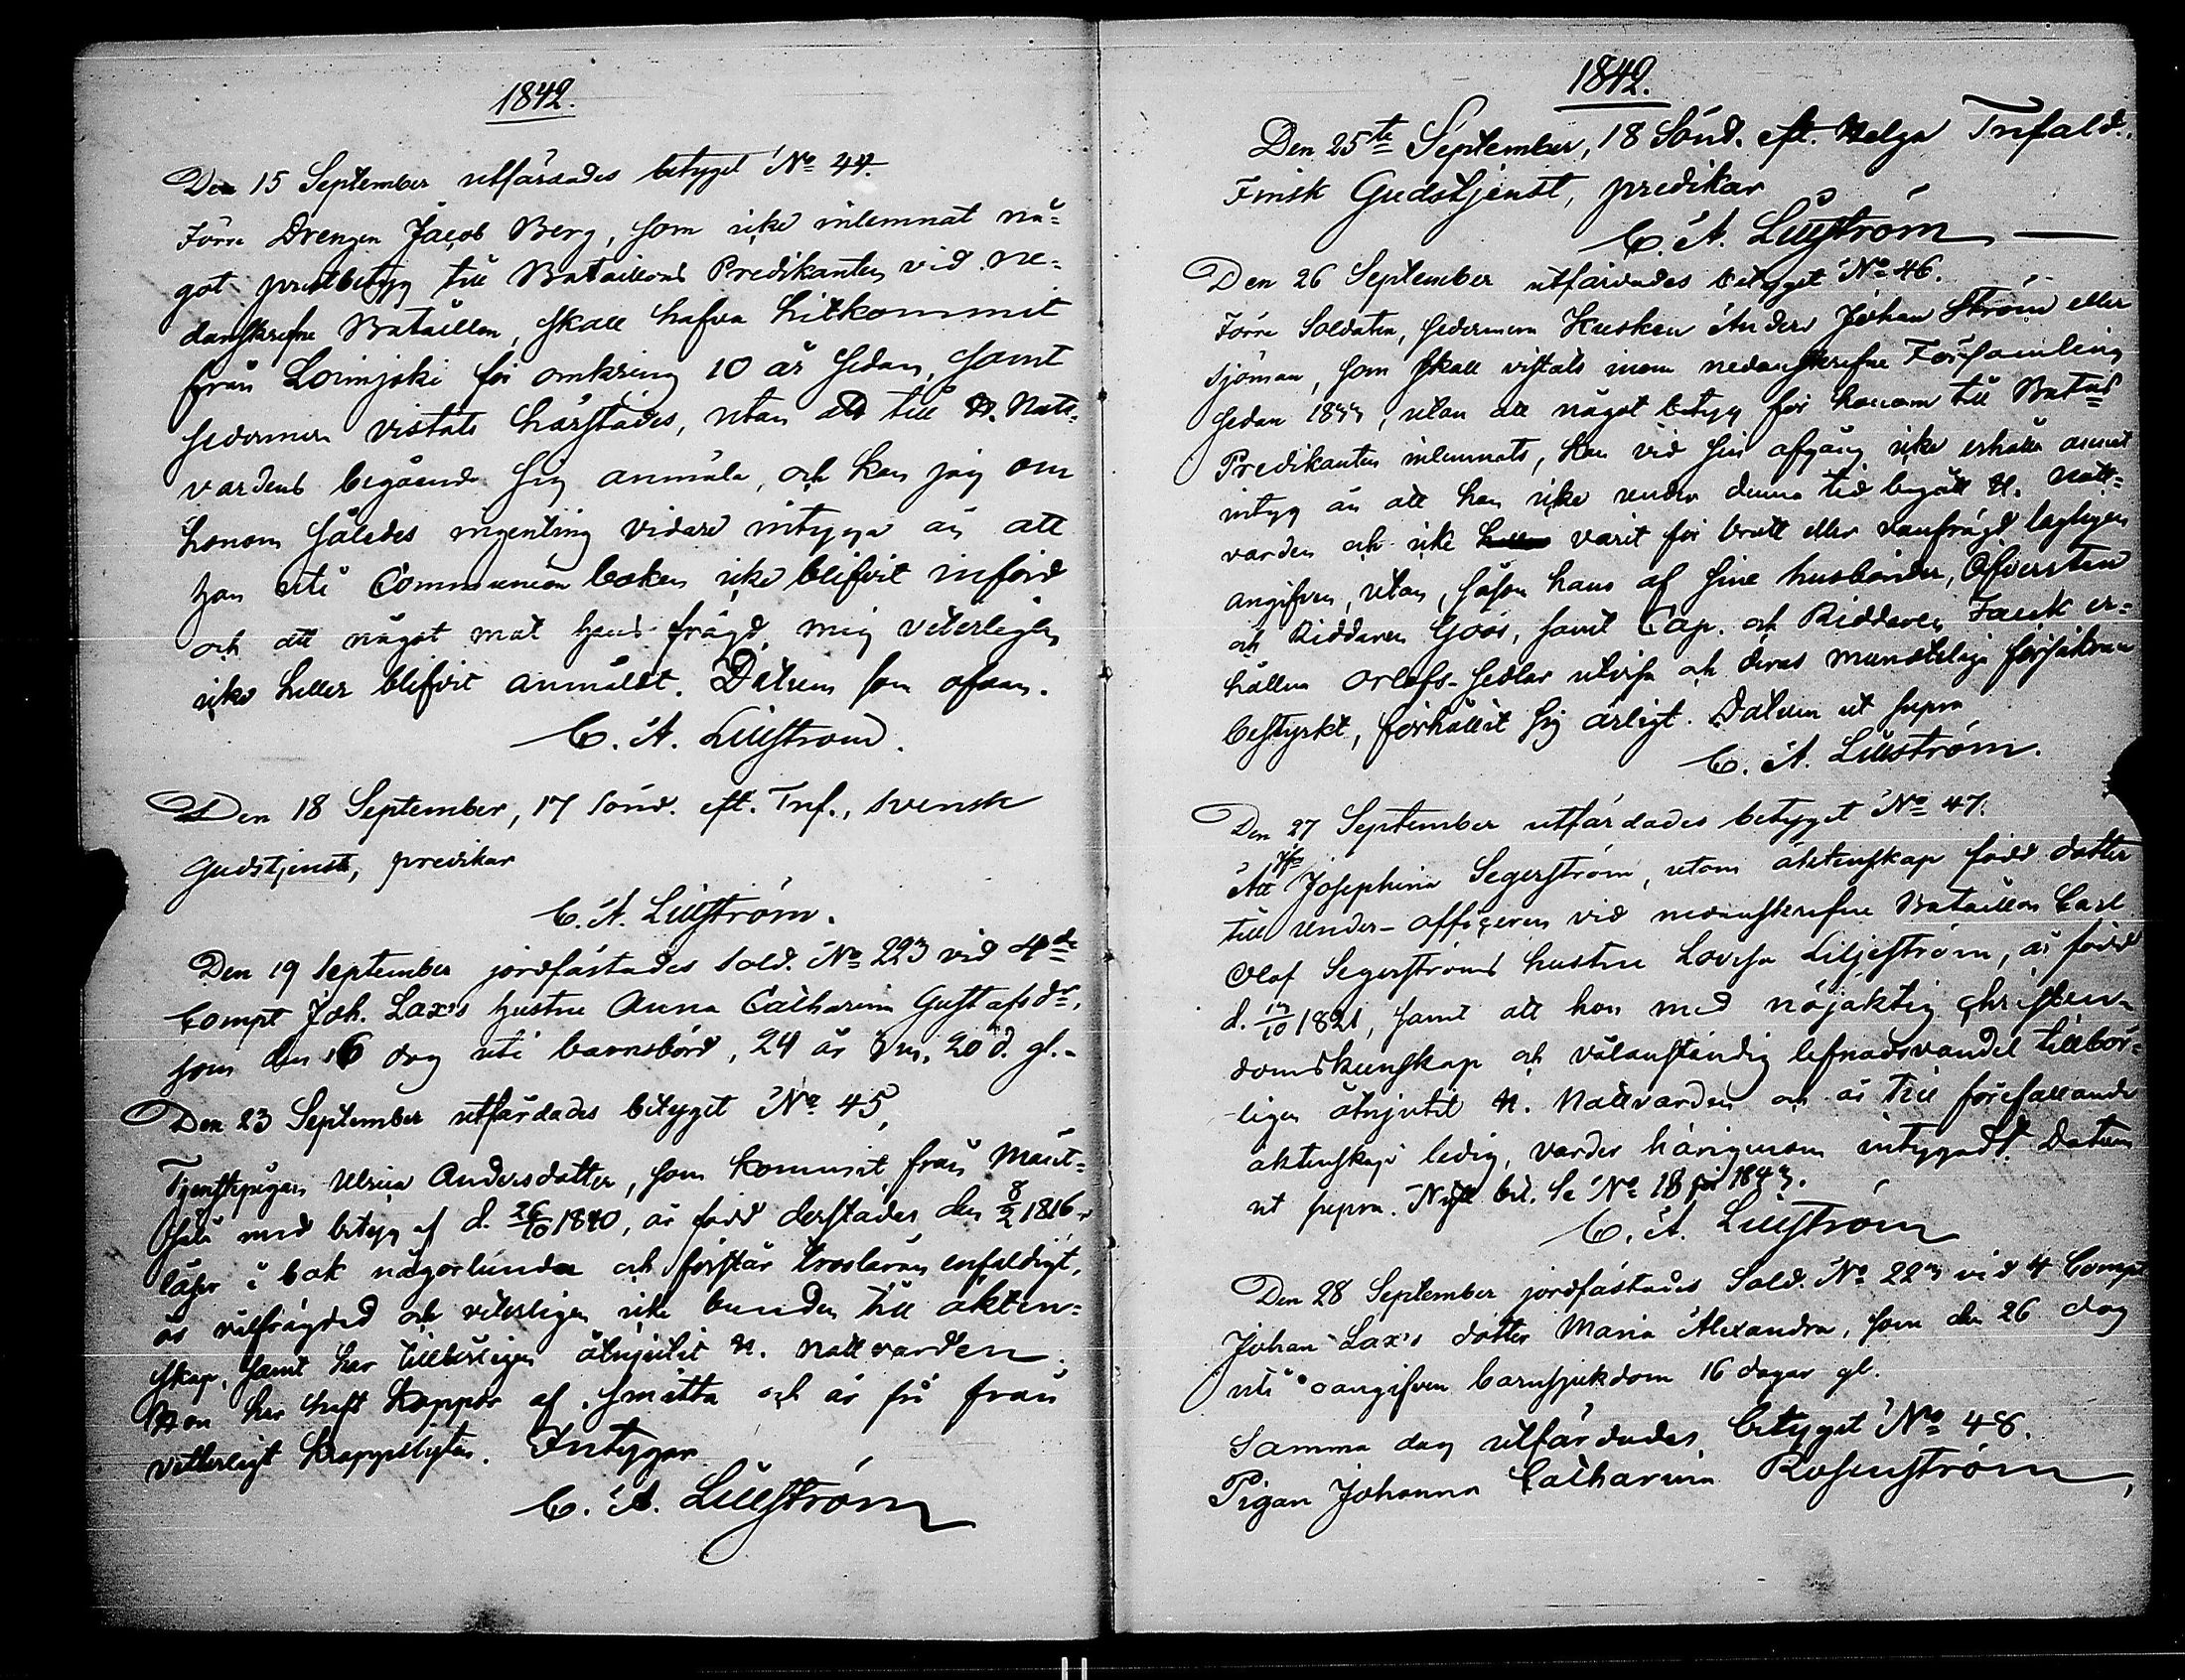 1842.
Den 15 September utfärdades betyget No 44.
Förre Drengen Jacob Berg, som icke inlemnat nå=
got prestbetyg till Bataillons Predikanten vid ne=
danskrefne Bataillon, skall hafva hitkommit
från Loimjoki för omkring 10 år sedan, samt
sedermera vistats härstädes, utan att till H. Natt=
vardens begående sig anmäla, och kan jag om
honom således ingenting vidare intyga än att
han uti Communion boken icke blifvit införd
och att något mot hans frägd mig veterligen
icke heller blifvit anmäldt. Datum som ofvan.
C. A. Lillström.
Den 18 September, 17 Sönd. eft. Tref., svensk
Gudstjenst, predikar
C. A. Lillström.
Den 19 September jordfästades Sold. No 223 vid 4de
Compt Joh. Lax's hustru Anna Catharina Gustafsdr,
som den 16 dog uti barnsbörd, 24 år 3 m. 20 d. gl.-
Den 23 September utfärdades betyget No 45,
Tjenstepigan Ulrica Andersdotter, som kommit från Mänt=
sälä med betyg af d. 26/10 1840, är född derstädes den 8/2 1816
läser i bok någorlunda och förstår trosläran enfaldigt,
är välfrägdad och veterligen icke bunden till äkten=
skap, samt har tillbörligen åtnjutit H. Nattvarden.
Hon har haft koppor af smitta och är fri från
vetterligt kroppslyten. Intygar
C. A. Lillström
1842.
Den 25te September, 18 Sönd. eft. Helga Trefald.
Finsk Gudstjenst, predikar
C. A. Lillström
Den 26 September utfärdades betyget No 46.
Förre Soldaten, sedermera Kusken Anders Johan Ström eller
Sjöman, som skall vistats inom nedanskrefne Församling
sedan 1833, utan att något betyg för honom till Batns
Predikanten inlemnats, kan vid sin afgång icke erhålla annat
intyg än att han icke under denna tid begått H. Natt=
varden och icke varit för brott eller vanfrägd lagligen
angifven, utan, såsom hans af sine husbönder, Öfversten
och Riddaren Göös, samt Cap. och Riddaren Fauk er=
hållne orlofs-sedlar utvisa och deras muntliga försäkran
bestyrkt, förhållit sig ärligt. Datum ut supra
C. A. Lillström.
Den 27 September utfärdades betyget No 47.
Att Jfn Josephina Segerström, utom äktenskap född dotter
till Under-officeren vid nedanskrefne Bataillon Carl
Olof Segerströms hustru Lovisa Liljeström, är född
d. 13/10 1821, samt att hon med nöjaktig christen=
domskunskap och välanständig lefnadsvandel tillbör=
ligen åtnjutit H. Nattvarden och är till förefallande
äktenskap ledig, varder härigenom intygadt. Datum
ut supra. Nytt bet. Se No 18 för 1843.
C. A. Lillström
Den 28 September jordfästades Sold. No 223 vid 4 Compt
Johan Lax's dotter Maria Alexandra, som den 26 dog
uti oangifven barnsjukdom 16 dagar gl.
Samma dag utfärdades betyget No 48.
Pigan Johanna Catharina Rosenström,